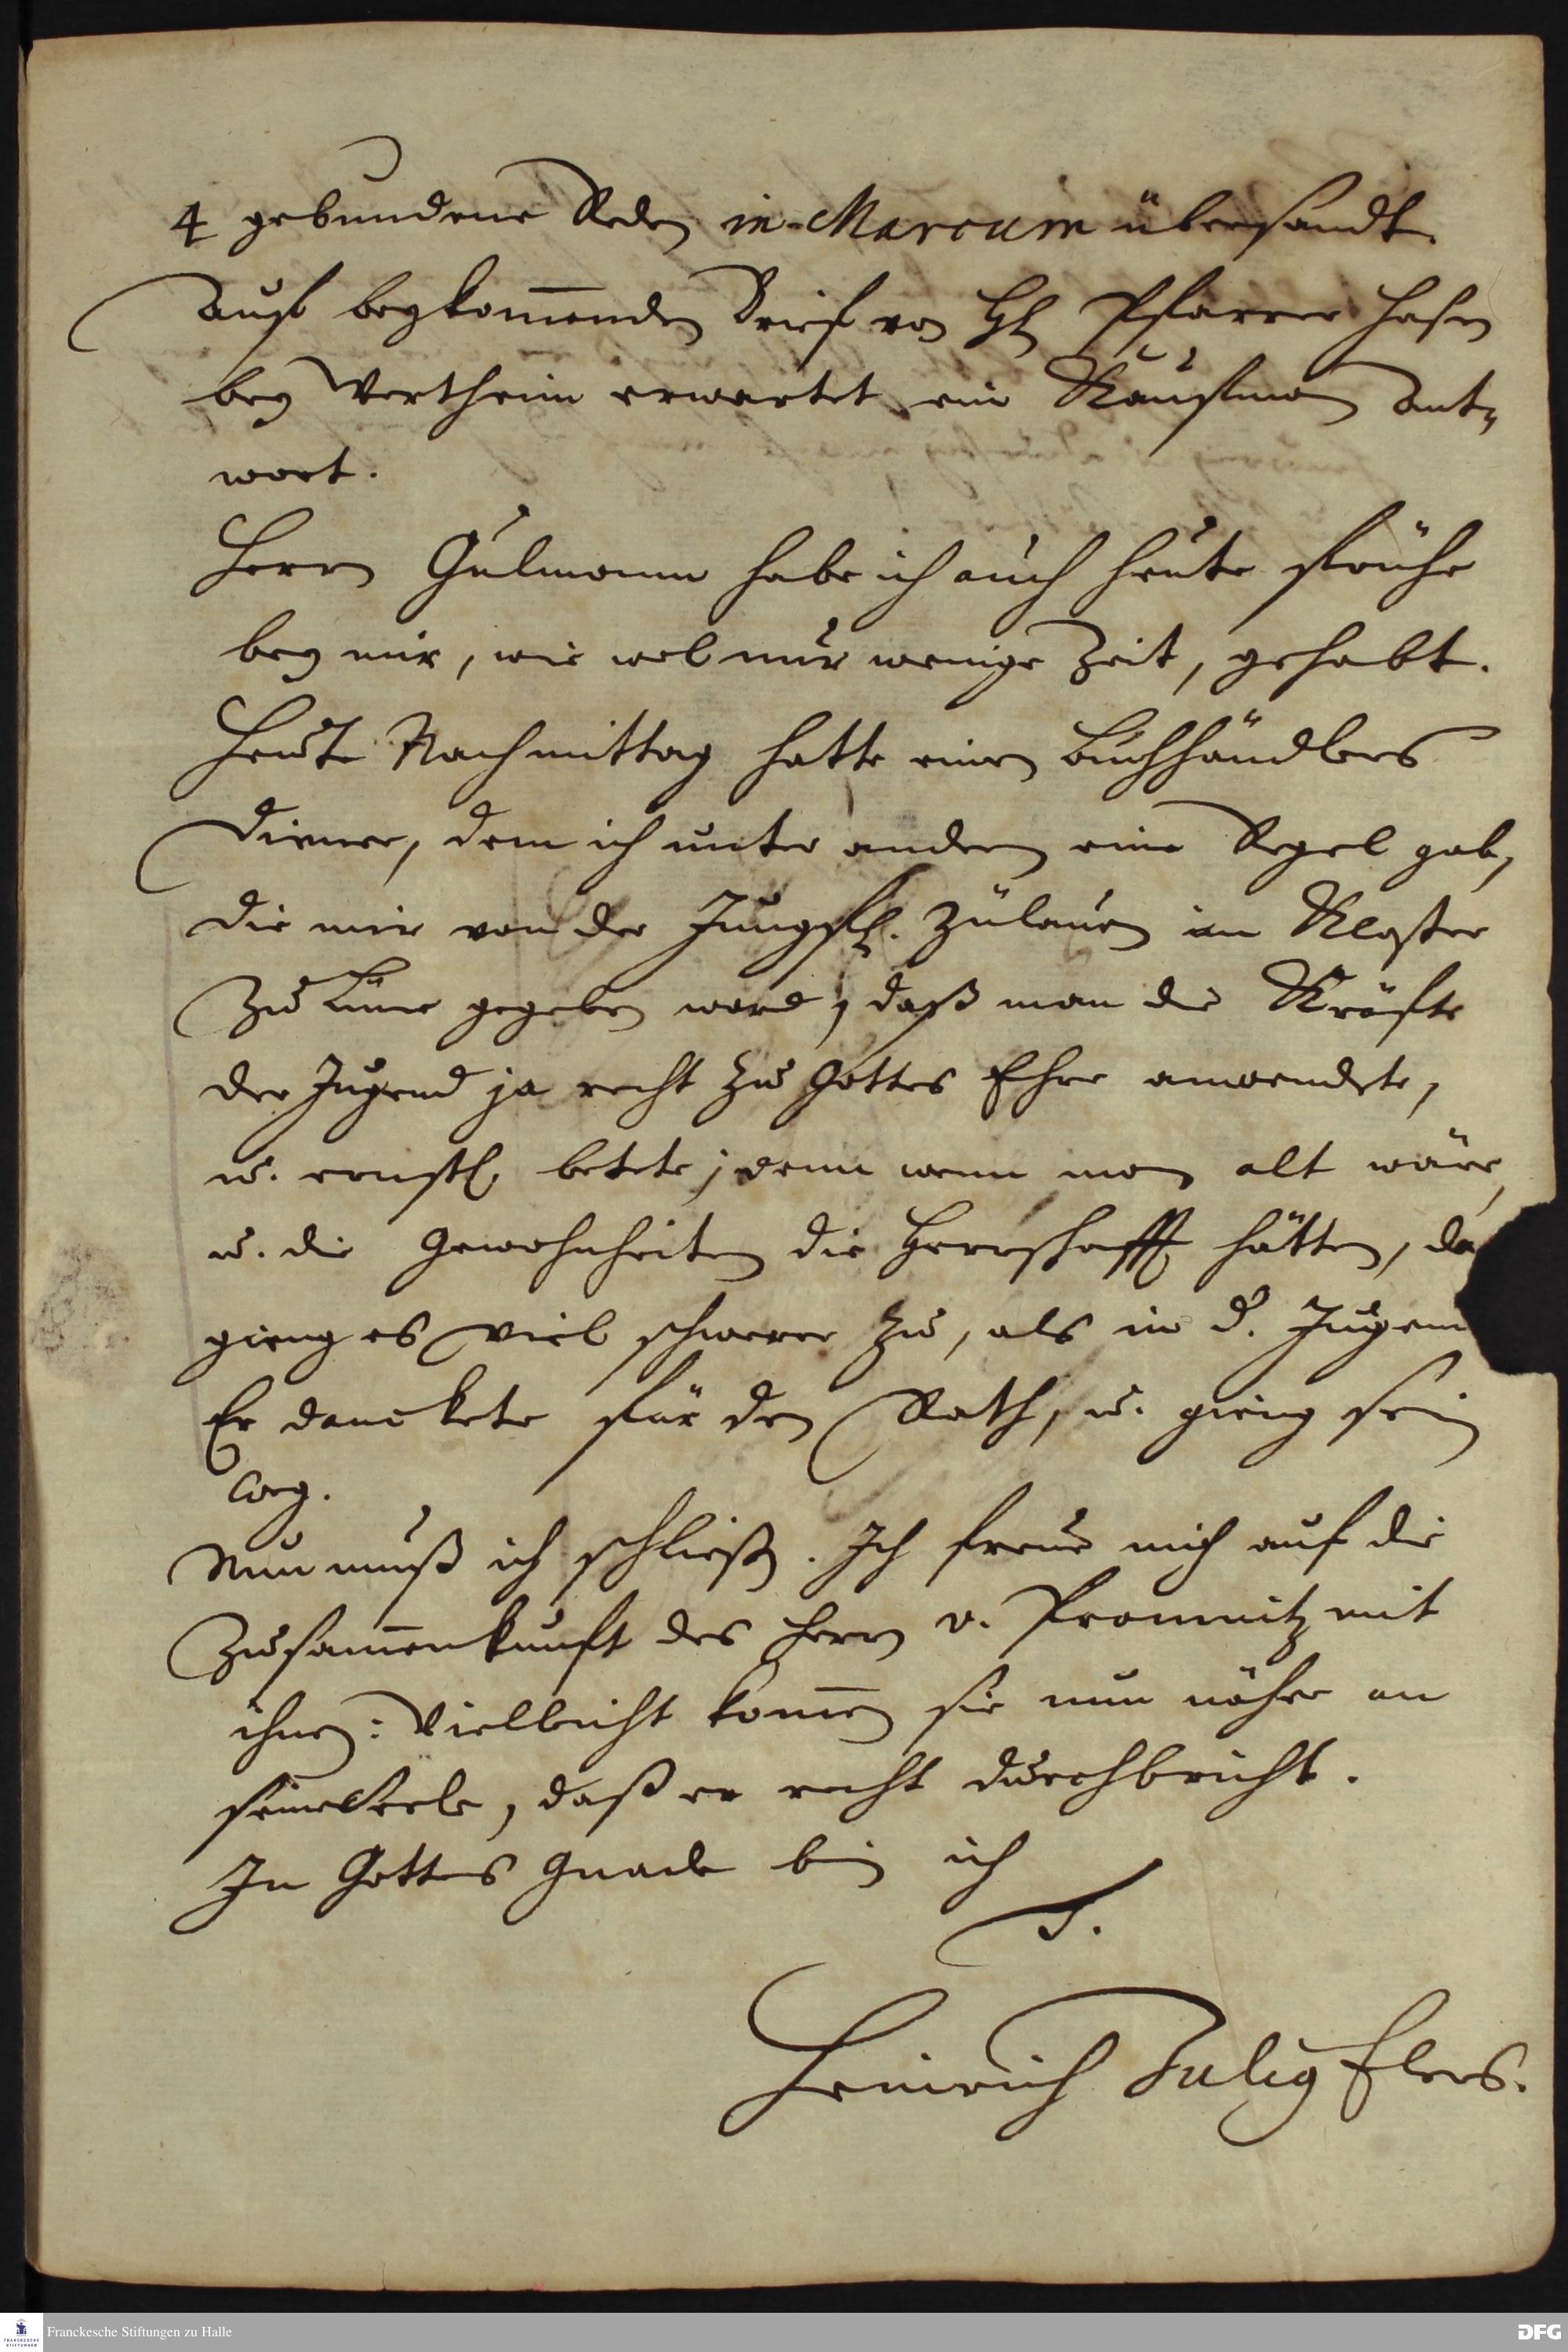 4 gebundene Reden in Marcum übersandt.
Auf beykom̅enden Brief von Hℓ Pfarrer Hasen
bey Wertheim erwartet ein Kaufman Ant-
wort.
Herrn Gulmann habe ich auch heute frühe
bey mir, wie wol nur wenige Zeit, gehabt.
Heute Nachmittag hatte einen Buchhändlers
Diener, dem ich unter andern eine Regel gab,
die mir von der Jungfℓ. Zülauen im Kloster
zu Lüne gegeben ward, daß man die Kräfte
der Jugend ja recht zu Gottes Ehre anwendete,
u. ernstℓ betete; denn wenn man alt wäre,
u. die Gewohnheiten die Herrschafft hätten, da
gieng es viel schwerer zu, als in d. Jugen
Er danckete für den Rath, u. gieng sein
Weg.
Nun muß ich schließen. Ich freue mich auf die
Zusam̅enkunft des Herrn v. Promnitz mit
ihnen: Vielleicht kom̅en sie nun näher an
seine Seele, daß er recht durchbricht.
In Gottes Gnade bin ich
Heinrich Julig Elers.
Franckesche Stiftungen zu Halle
FRANCKESCHE
STIFTUNGEN
DFG